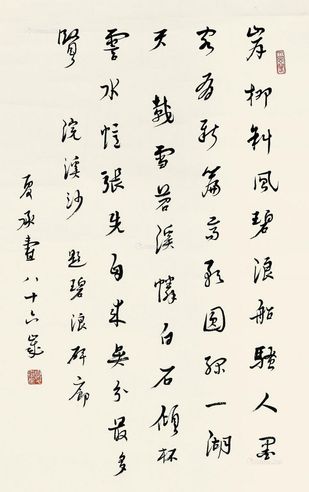 岸柳斜風碧浪船騷人墨
客有新篇高歌圓一湖
天載雪苕溪憐白石傾杯
雲水憶張先自來吳分最多
賢 浣溪沙 題碧浪碑廊
夏承燾八十六歲